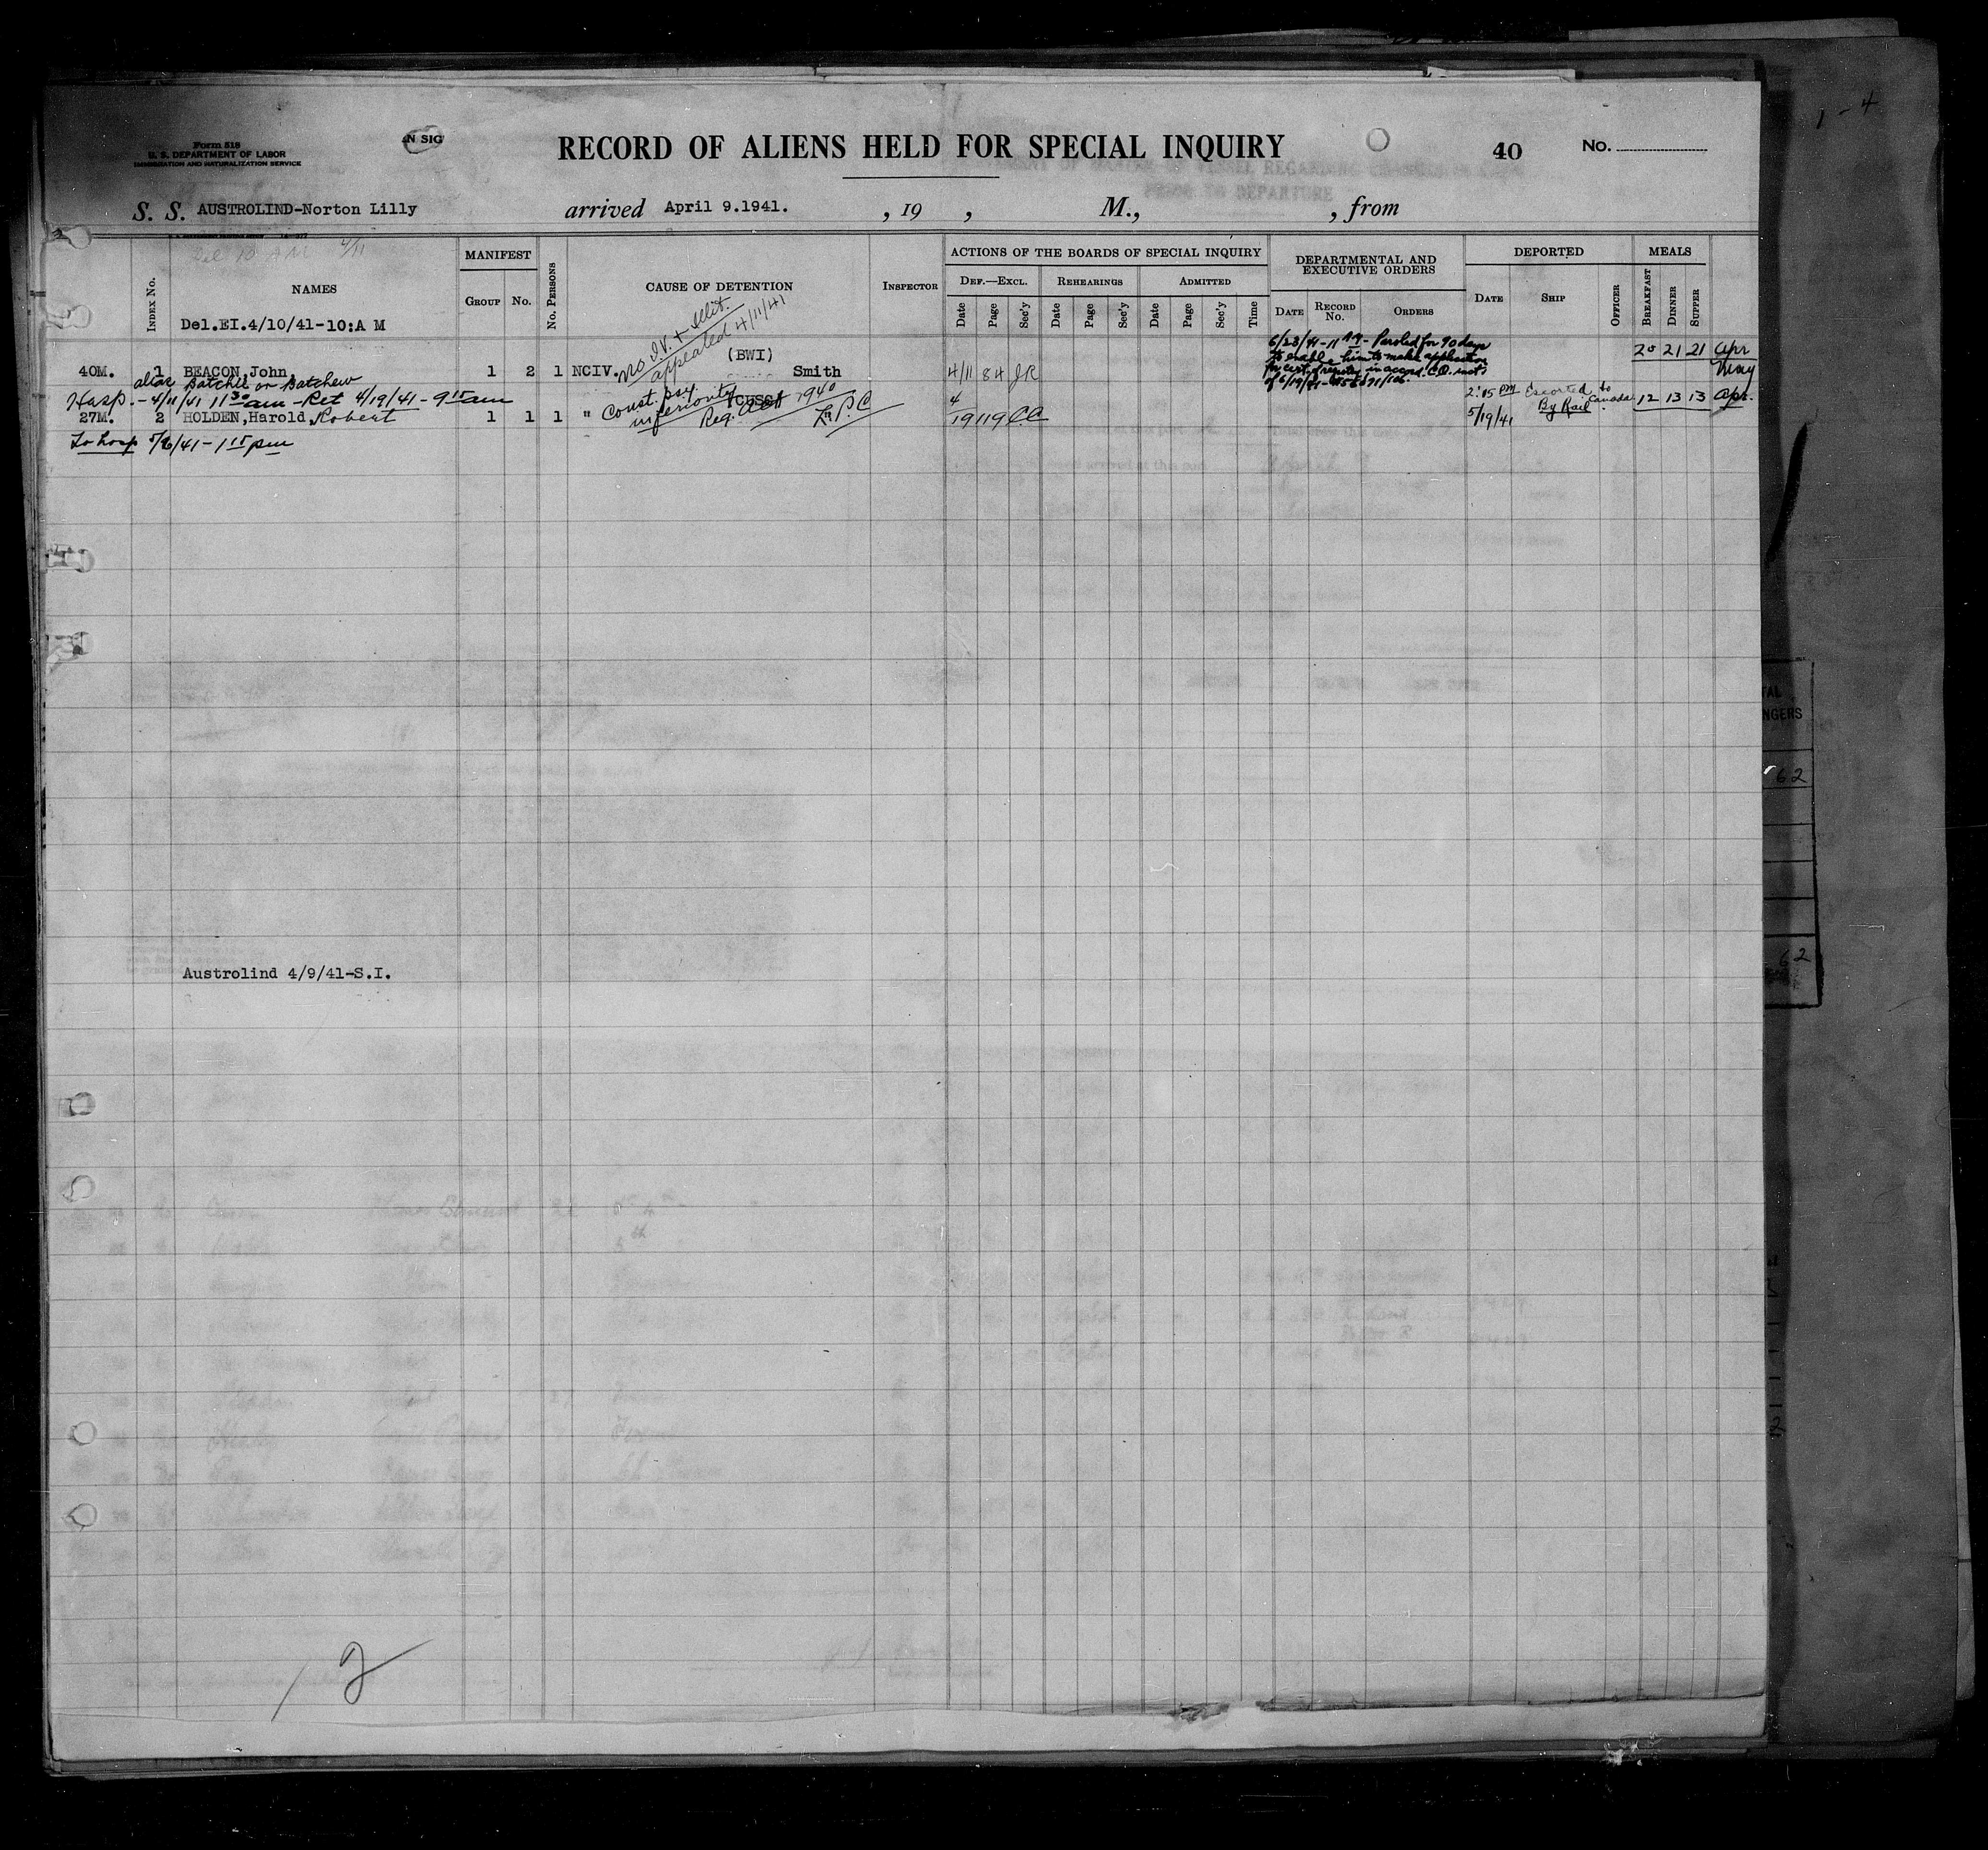 Form 518
U. S. DEPARTMENT OF LABOR
IMMIGRATION AND NATURALIZATION SERVICE
N SIG
RECORD OF ALIENS HELD FOR SPECIAL INQUIRY
40 No.
S. S. AUSTROLIND-Norton Lilly arrived April 9.1941. , 19 , M., , from
Del 10 AM 4/11
INDEX No.
NAMES
Del.EI.4/10/41-10:A M
MANIFEST
GROUP No.
No. PERSONS
CAUSE OF DETENTION
INSPECTOR
ACTIONS OF THE BOARDS OF SPECIAL INQUIRY
DEF.—EXCL. REHEARINGS ADMITTED
Date Page Sec'y Date Page Sec'y Date Page Sec'y Time
DEPARTMENTAL AND EXECUTIVE ORDERS
DATE RECORD No. ORDERS
DEPORTED
DATE SHIP OFFICER
MEALS
BREAKFAST DINNER SUPPER
no I.V. +
appealed 4/11/41
(BWI)
6/23/41-11 - Paroled for 90 days
to enable him to make application
40M. 1 BEACON,John, 1 2 1 NCIV. Smith 4/11 84 JR 20 21 21 Apr
May
alias Batchie or Batchew
Hosp. - 4/11/41 11 30 am - Ret 4/19/41 - 9 15 am
27M. 2 HOLDEN,Harold,Robert 1 1 1 " Const. psy.
inferiority
Reg. Act 1940
L.P.C
4
19 119 C.C
2:15 PM
5/19/41
Escorted to Canada
By Rail
12 13 13 Apr.
To hosp 5/6/41 - 1 15 pm
Austrolind 4/9/41-S.I.
2
1-4
62
62